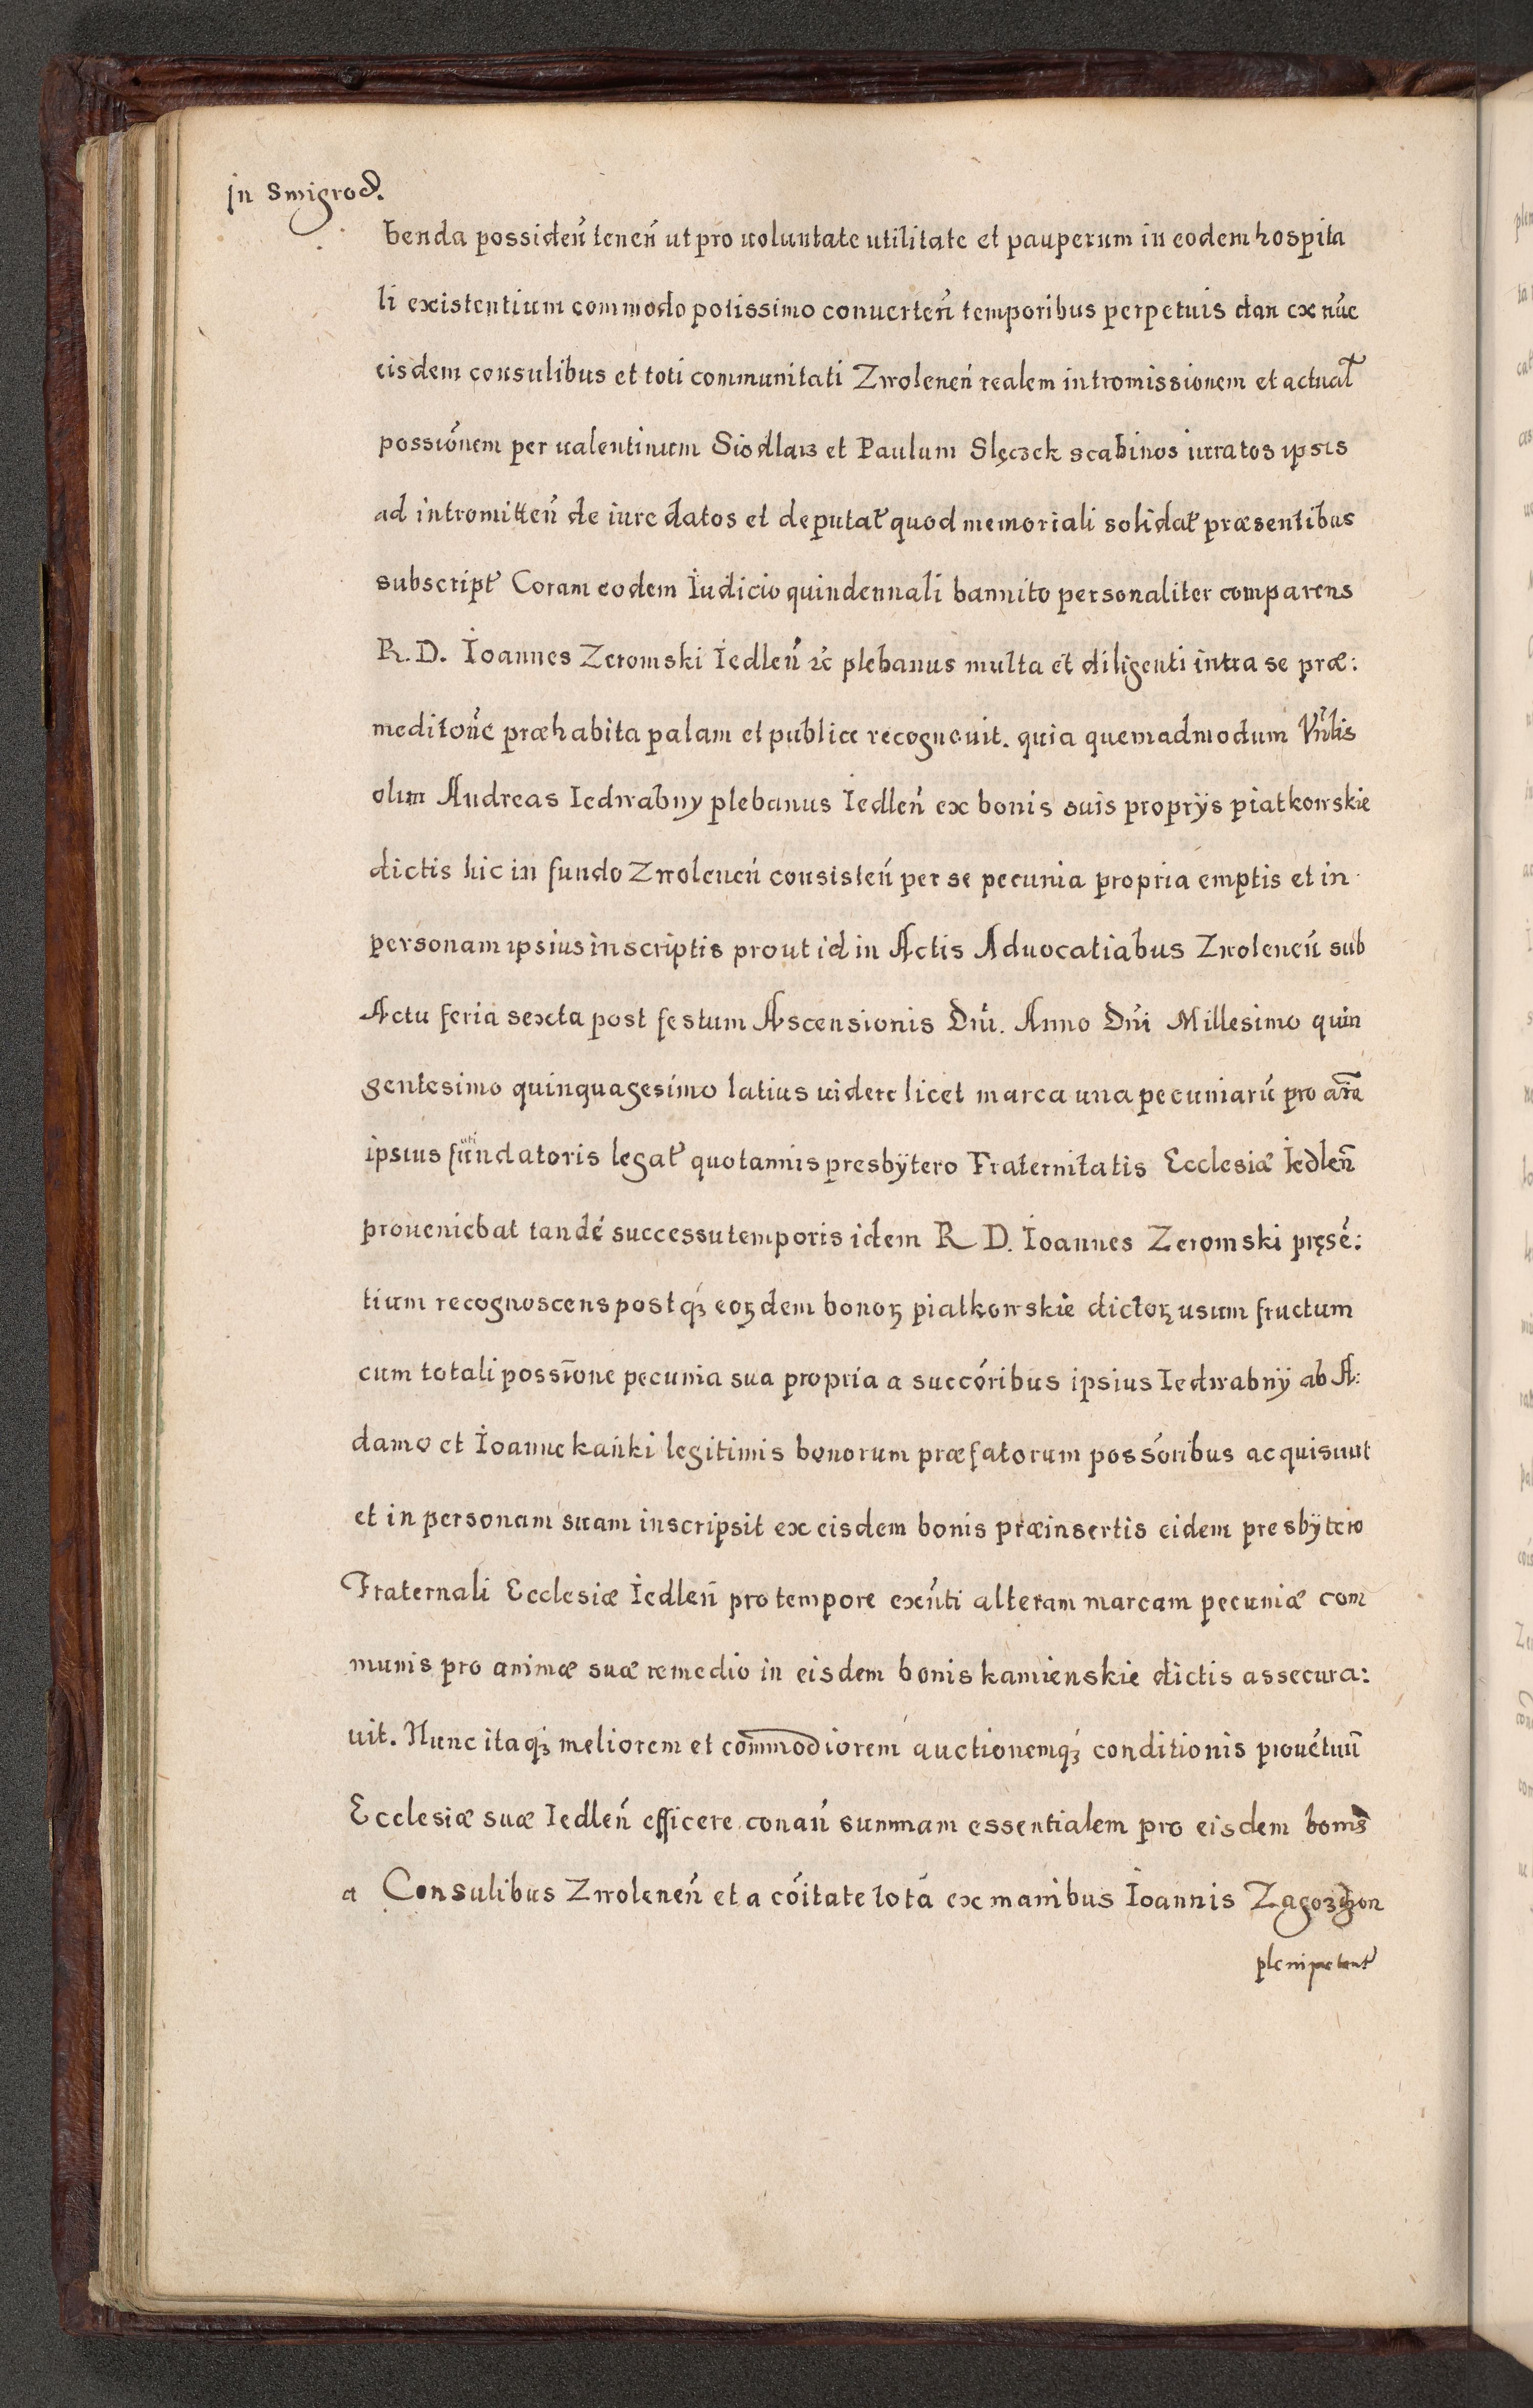 in Smigrod.
benda possideń teneń ut pro uoluntate utilitate et pauperum in eodem hospita
li existentium commodo potissimo conuerteń temporibus perpetuis dan ex núc
eisdem consulibus et toti communitati Zwoleneń realem intromissionem et actual̃
possiónem per ualentinum Siodlarz et Paulum Slęczek scabinos iuratos ipsis
ad intromitteń de iure datos et deputat̃ quod memoriali solidat̃ præsentibus
subscript̃ Coram eodem Iudicio quindennali bannito personaliter comparens
R. D. Ioannes Zeromski Iedleń ꝛc̃ plebanus multa et diligenti intra se præ:
meditoñe præhabita palam et publice recognouit. quia quemadmodum Vñlis
olim Andreas Iedwabny plebanus Iedleń ex bonis suis proprÿs piatkowskie
dictis hic in fundo Zwoleneń consisteń per se pecunia propria emptis et in
personam ipsius inscriptis prout id in Actis Aduocatiabus Zwoleneń sub
Actu feria sexta post festum Ascensionis Dñi. Anno Dñi Millesimo quin
gentesimo quinquagesimo latius uidere licet marca una pecuniarũ pro aĩa
ipsius fundatoris legat̃ quotannis presbÿtero Fraternitatis Ecclesiæ Iedleñ
proueniebat tandé successu temporis idem R D. Ioannes Zeromski pręsé:
tium recognoscens postqꝫ eoꝝdem bonoꝝ piatkowskie dictoꝝ usum fructum
cum totali possĩone pecunia sua propria a succóribus ipsius Iedwabnÿ ab A:
damo et Ioanne kańki legitimis bonorum præfatorum possóribus acquisiuit
et in personam suam inscripsit ex eisdem bonis præinsertis eidem presbÿtero
Fraternali Ecclesiæ Iedleñ pro tempore exẽnti alteram marcam pecuniæ com
munis pro animæ suæ remedio in eisdem bonis kamienskie dictis assecura:
uit. Nunc itaqꝫ meliorem et com̃modiorem auctionemqꝫ conditionis prouétuũ
Ecclesiæ suæ Iedleń efficere conań summam essentialem pro eisdem bonis
a Consulibus Zwoleneń et a cóitate totá ex manibus Ioannis Zagozdzon
plenipotent̃